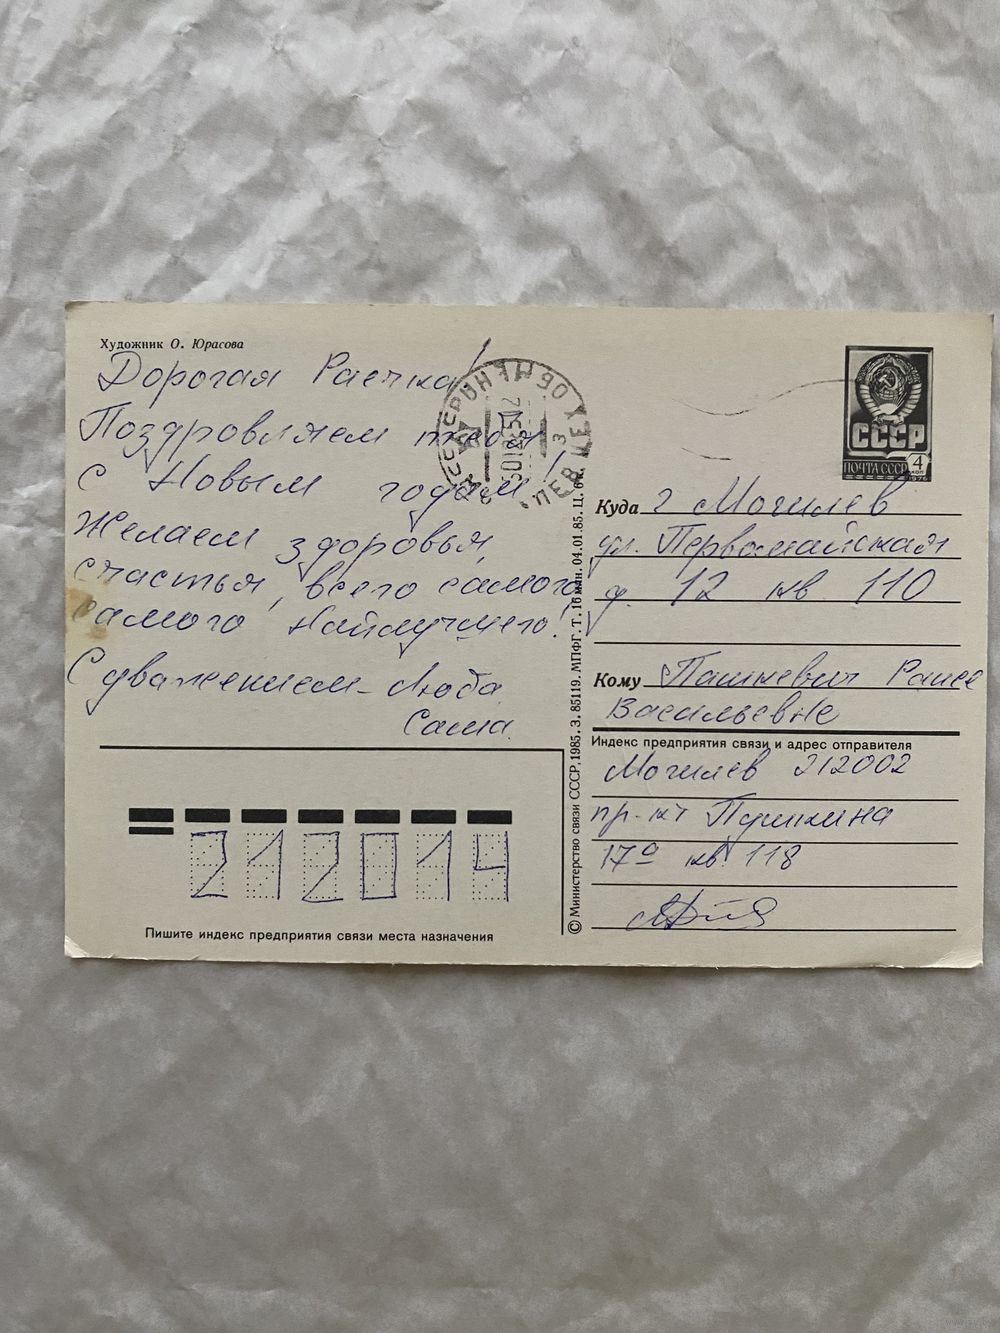 Художник О. Юрасова
Дорогая Раечка!
Поздровляем тебя
с Новым годом!
Желаем здоровья,
счастья, всего самого,
самого наилучшего!
С уважением - Люба
Саша.
Пишите индекс предприятия связи места назначения
212014
© Министерство связи СССР, 1985. З. 85119. МПФГ. Т. 16 млн. 04.01.85. Ц. 6 к.
СССР
ПОЧТА СССР
4
КОП
1976
Куда г Могилев
ул. Первомайская
д. 12 кв 110
Кому Пашкевич Раисе
Васильевне
Индекс предприятия связи и адрес отправителя
Могилев 212002
пр-кт Пушкина
17а кв. 118